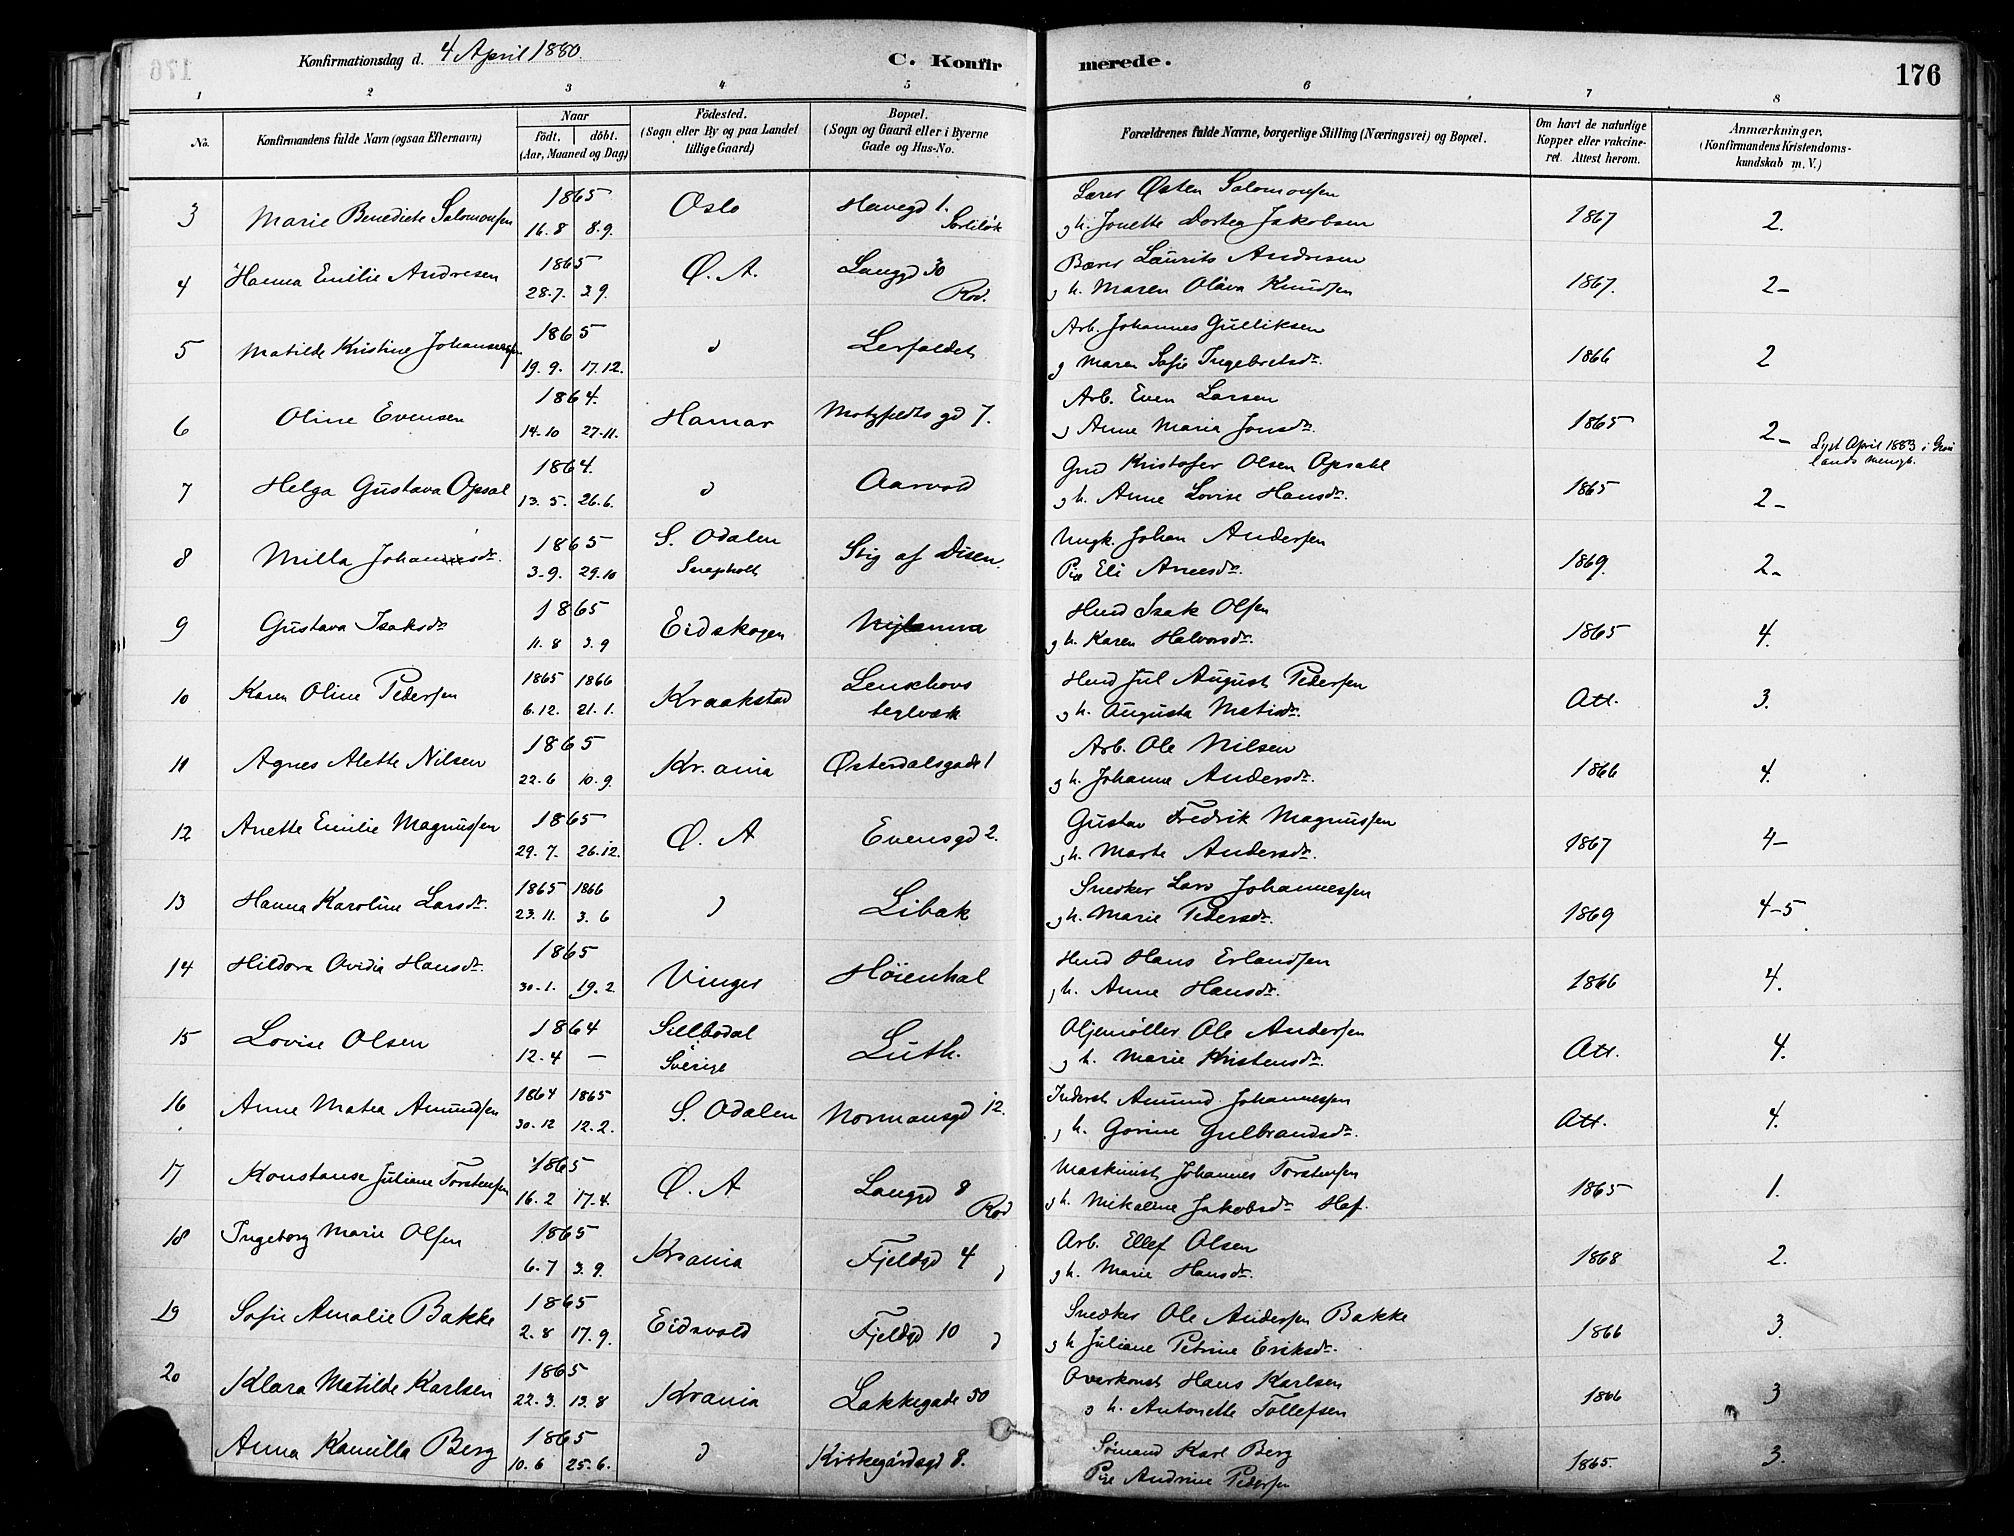 Konfirmationsdag d. 4 April 1880.
C. Konfirmerede.
176
1 2 3 4 5 6 7 8
No. Konfirmandens fulde Navn (ogsaa Efternavn) Naar födt. döbt. (Aar, Maaned og Dag) Födested. (Sogn eller By og paa Landet tillige Gaard) Bopæl. (Sogn og Gaard eller i Byerne Gade og Hus-No. Forældrenes fulde Navne, borgerlige Stilling (Næringsvei) og Bopæl. Om havt de naturlige Kopper eller vakcineret. Attest herom. Anmærkninger. (Konfirmandens Kristendomskundskab m. V.)
1865 Lærer Østen Salomonsen
3 Marie Benedicte Salomonsen 16.8 8.9. Oslo Havegd 1. g h. Jonette Dortea Jakobsen 1867 2.
1865 Bærer Laurits Andresen
4 Hanna Emilie Andresen 28.7. 3.9. Ø. A. Langgd 30 Rod. g h. Maren Olava Knudsen 1867. 2-
1865 Arb. Johannes Gulliksen
5 Matilde Kristine 19.9. 17.12. Lerfaldet g Maren Sofie Ingebretsdr. 1866 2
1864. Arb. Even Larsen
6 Oline Evensen 14.10 27.11. Hamar Motzfeldts gd 7. g Anne Maria Jonsdr. 1865 2-
Lyst April 1883 i Grønlands menigh.
1864. Kristofer Olsen Opsahl
7 Helga Gustava Opsal 13.5. 26.6. Aarvold g h. Anne Lovise Hansdr. 1865 2-
1865 Ungk. Johan Andersen
8 Milla 3.9. 29.10 S. Odalen Stig af Disen. Pie Eli 1869. 2-
1865 Hmd Isak Olsen
9 Gustava Isaksdr 11.8 3.9 Eidskogen g h. Karen Halvorsdr. 1865 4.
1865 1866 Hmd Jul August Pedersen
10 Karen Oline Pedersen 6.12. 21.1. Kraakstad teglværk g h. Augusta Att. 3.
1865 Arb. Ole Nilsen
11 Agnes Alette Nilsen 22.6 10.9. Kr.ania Østerdalsgade 1 g h. Johanne Andersdr. 1866 4.
1865 Gustav Fredrik Magnussen
12 Anette Emilie Magnussen 29.7. 26.12. Ø. A Evensgd 2. g h. Marte Andersdr. 1867 4-
1865 1866 Snedker Lars Johannessen
13 Hanna Karoline Larsdr. 23.11. 3.6 Libak g h. Marie Pedersdr. 1869 4-5
1865 Hmd Hans Erlandsen
14 Hildora Ovidia Hansdr. 30.1. 19.2. Vinger Høienhal g h. Anne Hansdr. 1866 4.
1864 Oljemøller Ole Andersen
15 Lovise Olsen 12.4 — Sillbodal Sverige Luth. g h. Marie Kristensdr. Att. 4.
1864 1865 Inderst Amund Johannessen
16 Anne Matea Amundsen 30.12 12.2. S. Odalen Normansgd 12. g h. Gorine Gulbrandsdr. Att. 4.
1865 Maskinist Johannes Torstensen
17 Konstanse Juliane Torstensen 16.2 17.4. Ø. A Langgd 8 Rod g h. Mikaline Jakobsdr Hof. 1865 1.
1865 Arb. Ellef Olsen
18 Ingeborg Marie Olsen 6.7 3.9. Krania Fjeldgd 4 g h. Marie Hansdr. 1868 2.
1865 Snedker Ole Andersen Bakke
19 Sofie Amalie Bakke 2.8 17.9. Eidsvold Fjeldgd 10 g h Juliane Petrine Eriksdr. 1866 3.
1865 Overkonst Hans Karlsen
20 Klara Matilde Karlsen 22.3. 13.8 Krania Lakkegade 50 g h. Antonette Tollefsen 1866 3
1865 Sømand Karl Berg
Anna Kamilla Berg 10.6 25.6. Kirkegårdsgd 8. Pie Andrine Pedersen 1865. 3.